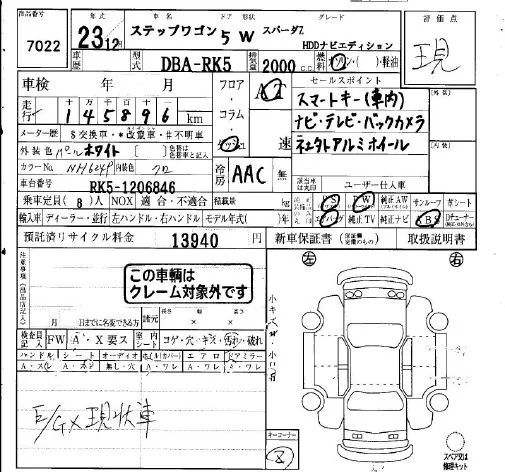 出品番号 年式 車名 ドア 形状 グレード 評価点
7022 23 12 ステップワゴン 5 W スパーダZ
HDDナビエディション
現
車歴 型式 DBA-RK5 排気量 2000 C.C 燃料 ガソリン・軽油
車検 年 月 フロア・コラム AT セールスポイント
走行 十 万 千 百 十 一
145896 km
スマートキー(車内)
ナビ・テレビ・バックカメラ
社外アルミホイール
メーター歴 $交換車・*改ざん車・#不明車
外装色 パールホワイト
速
カラーNo. NH624P 内装色 クロ
冷房 AAC 無
車台番号 RK5-1206846 ユーザー仕入車
乗車定員 ( 8 )人 NOX 適合・不適合 積載量 kg SW 純正AW サンルーフ 革シート
輸入車 ディーラー・並行 左ハンドル・右ハンドル モデル年式( )年 エアバッグ 純正TV 純正ナビ ABS
預託済リサイクル料金 13940 円 新車保証書 取扱説明書
注意事項
この車輌は
クレーム対象外です
左 右
月 日までに名変できる方 長さ 幅 高さ
検査員記入 FW A・X要ス 室内シート コゲ・穴・キズ・汚れ・破れ
ハンドル シート オーディオ エアロ ドアミラー
無し・穴 A・ワレ A・ワレ
E/G×現状車
オークローナー
8
スペア又は
修理キット